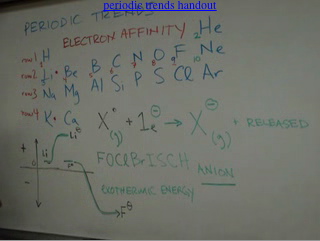 periodic trends handout
PERIODIC TRENDS
ELECTRON AFFINITY 2He
row1 H
row2 Li Be B C N O F 10Ne
row3 Na Mg Al Si P S Cl Ar
row4 K Ca
X(g) + 1e⊖ → X⊖(g) + RELEASED
FOClBrISCH ANION
EXOTHERMIC ENERGY
+ Li Li⊖
0
-
F⊖